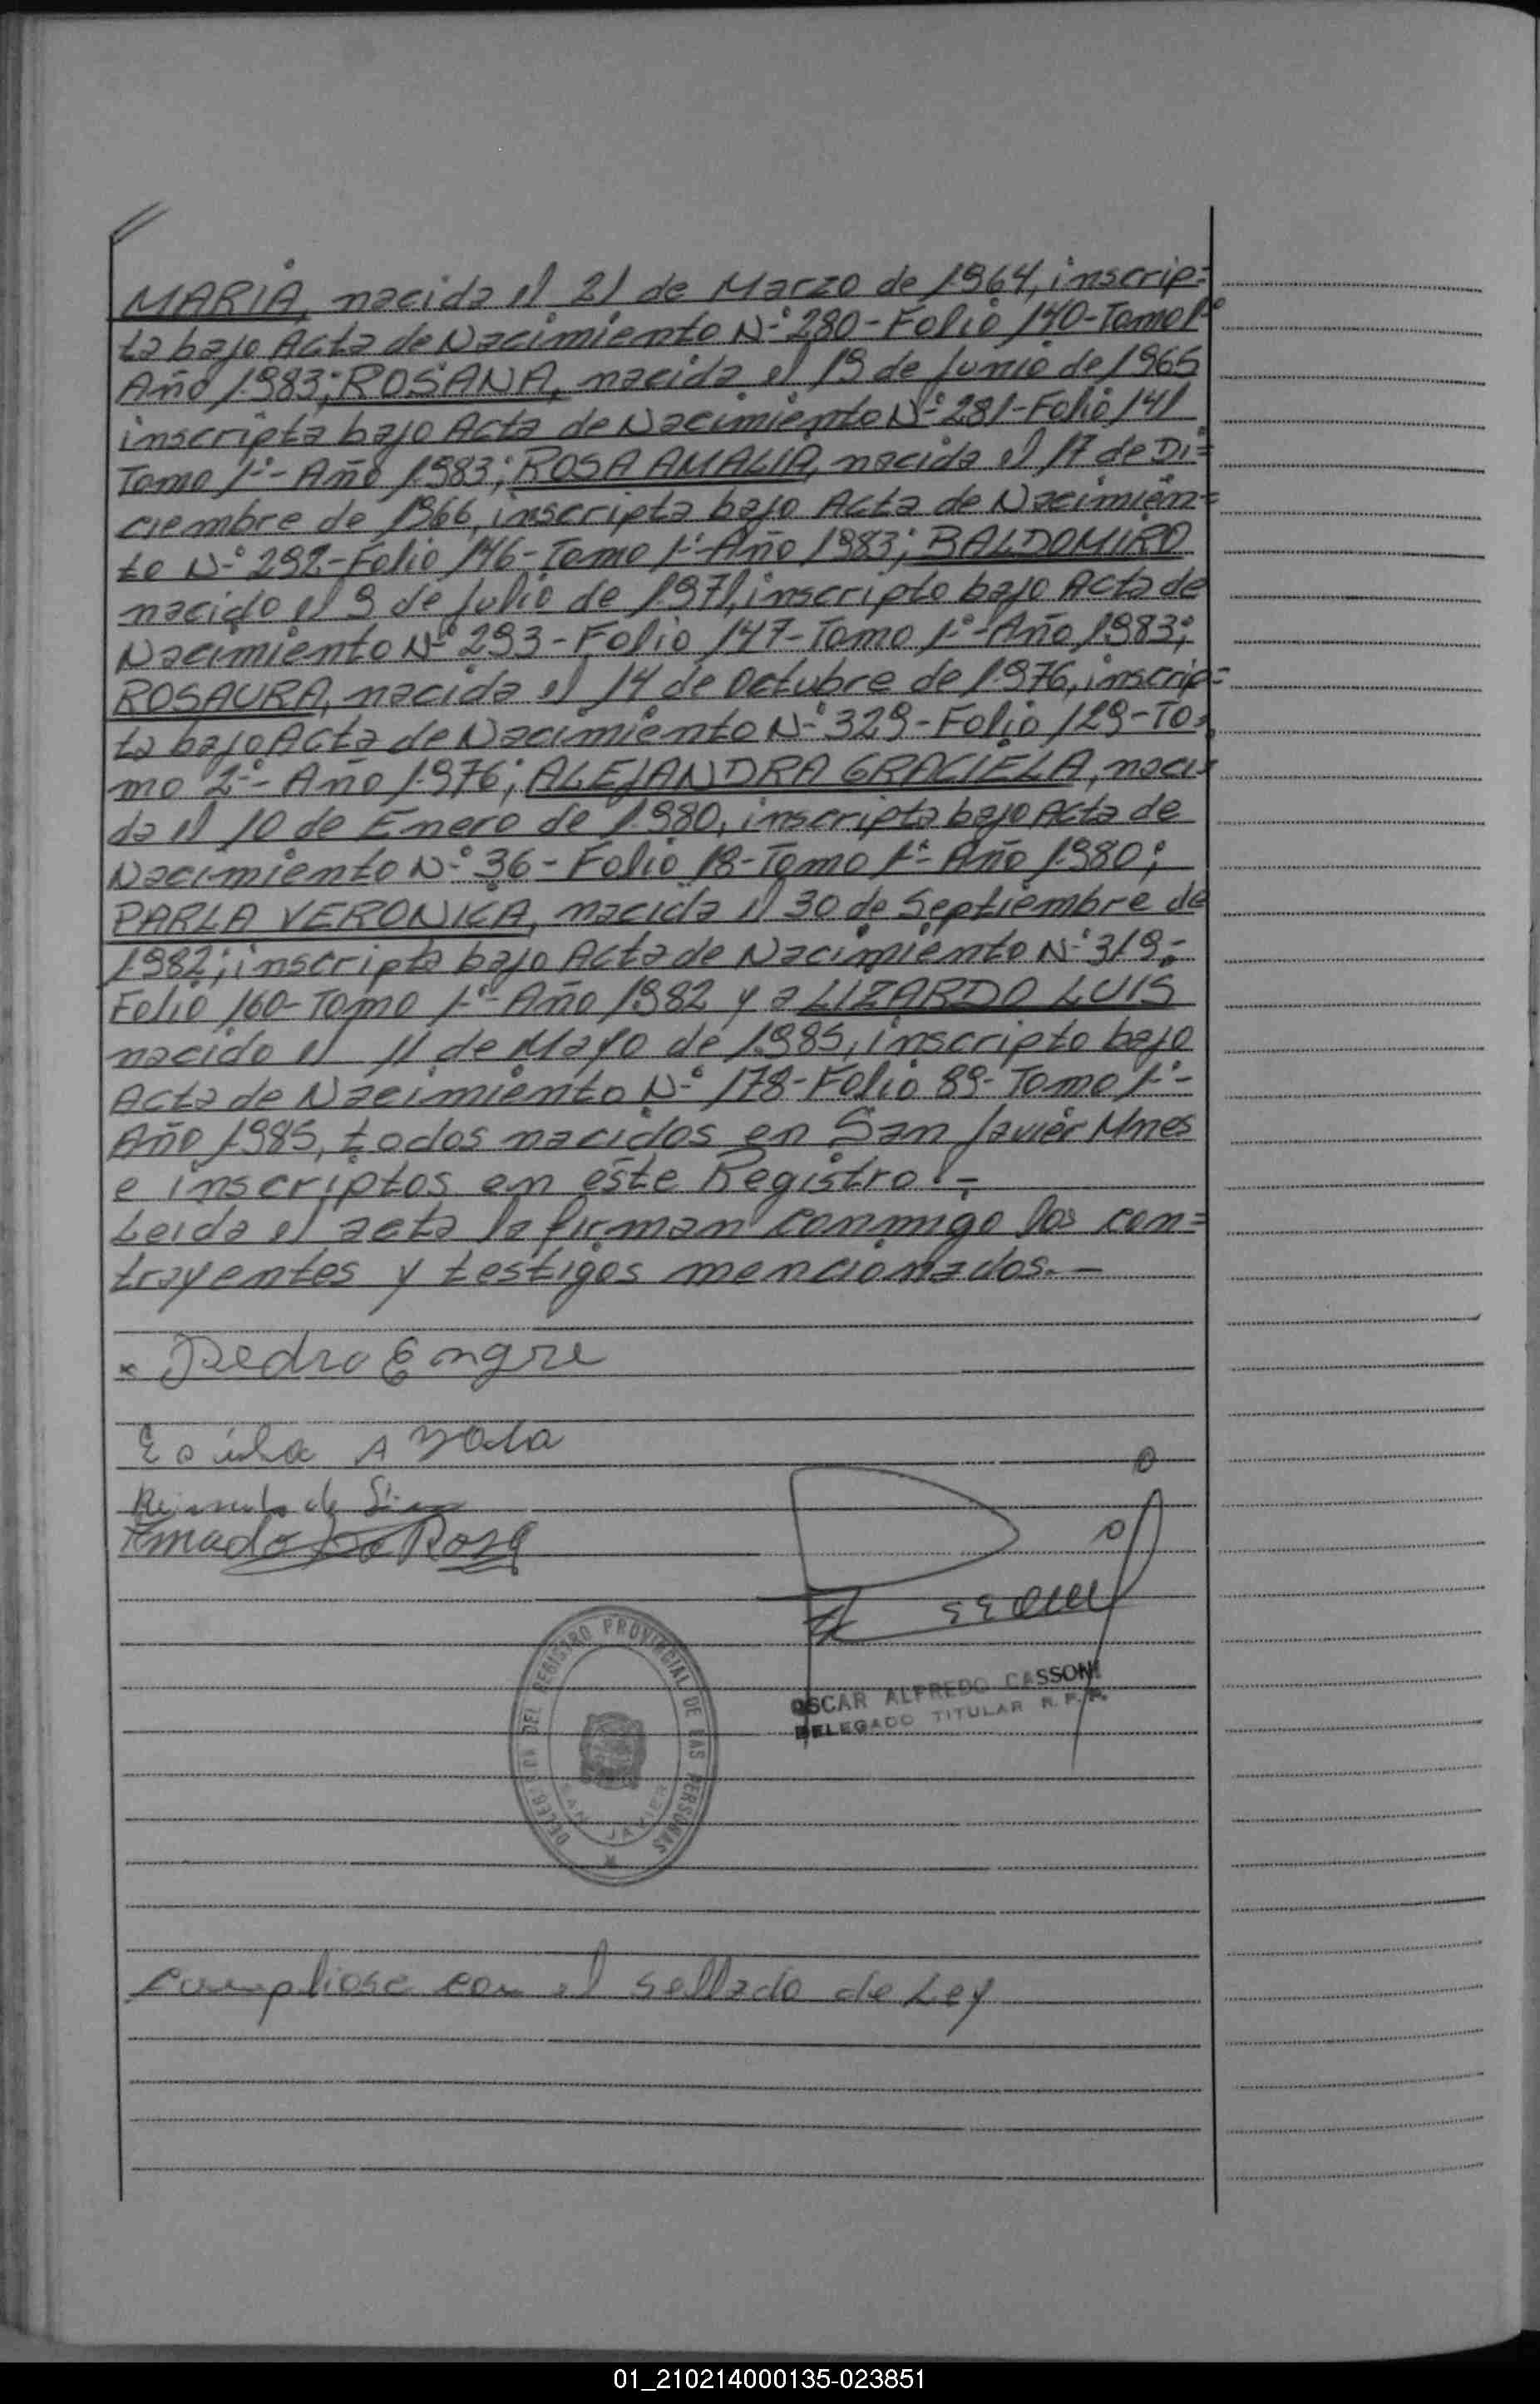 MARIA, nacida el 21 de Marzo de 1964, inscrip=
ta bajo Acta de Nacimiento Nº 280-Folio 140-Tomo 1º
Año 1.983; ROSANA, nacida el 19 de Junio de 1965
inscripta bajo Acta de Nacimiento Nº 281-Folio 141
Tomo 1º- Año 1983; ROSA AMALIA, nacida el 17 de Di=
ciembre de 1966, inscripta bajo Acta de Nacimien=
to Nº 292-Folio 146-Tomo 1º-Año 1983; BALDOMIRO
nacido el 9 de Julio de 1.971, inscripto bajo Acta de
Nacimiento Nº 293-Folio 147-Tomo 1º-Año 1983;
ROSAURA, nacida el 14 de Octubre de 1.976, inscrip=
ta bajo Acta de Nacimiento Nº 329-Folio 129-To=
mo 2º- Año 1.976; ALEJANDRA GRACIELA, naci=
da el 10 de Enero de 1.980, inscripta bajo Acta de
Nacimiento Nº 36-Folio 18-Tomo 1º- Año 1.980;
PARLA VERONICA, nacida el 30 de Septiembre de
1.982; inscripta bajo Acta de Nacimiento Nº 319-
Folio 160-Tomo 1º- Año 1982 y a LIZARDO LUIS
nacido el 11 de Mayo de 1.985, inscripto bajo
Acta de Nacimiento Nº 178-Folio 89-Tomo 1º-
Año 1.985, todos nacidos en San Javier Mnes
e inscriptos en este Registro.-
Leida el acta la firman conmigo los con=
trayentes y testigos mencionados.-
x Pedro Engre
Ayala
de
Amado Da Rosa
OSCAR ALFREDO CASSONI
DELEGADO TITULAR R. P. P.
DELEGACION DEL REGISTRO PROVINCIAL DE LAS PERSONAS
SAN JAVIER
cumpliose con el sellado de Ley
01_210214000135-023851